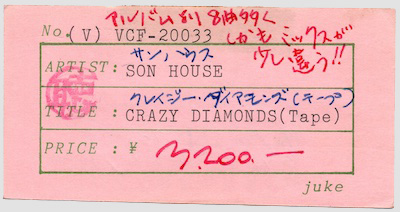 アルバムより8曲多く
しかもミックスが
少し違う!!
No.(V) VCF-20033
サンハウス
ARTIST: SON HOUSE
クレイジー・ダイアモンズ(テープ)
TITLE : CRAZY DIAMONDS(Tape)
PRICE : ¥ 3,200.—
juke